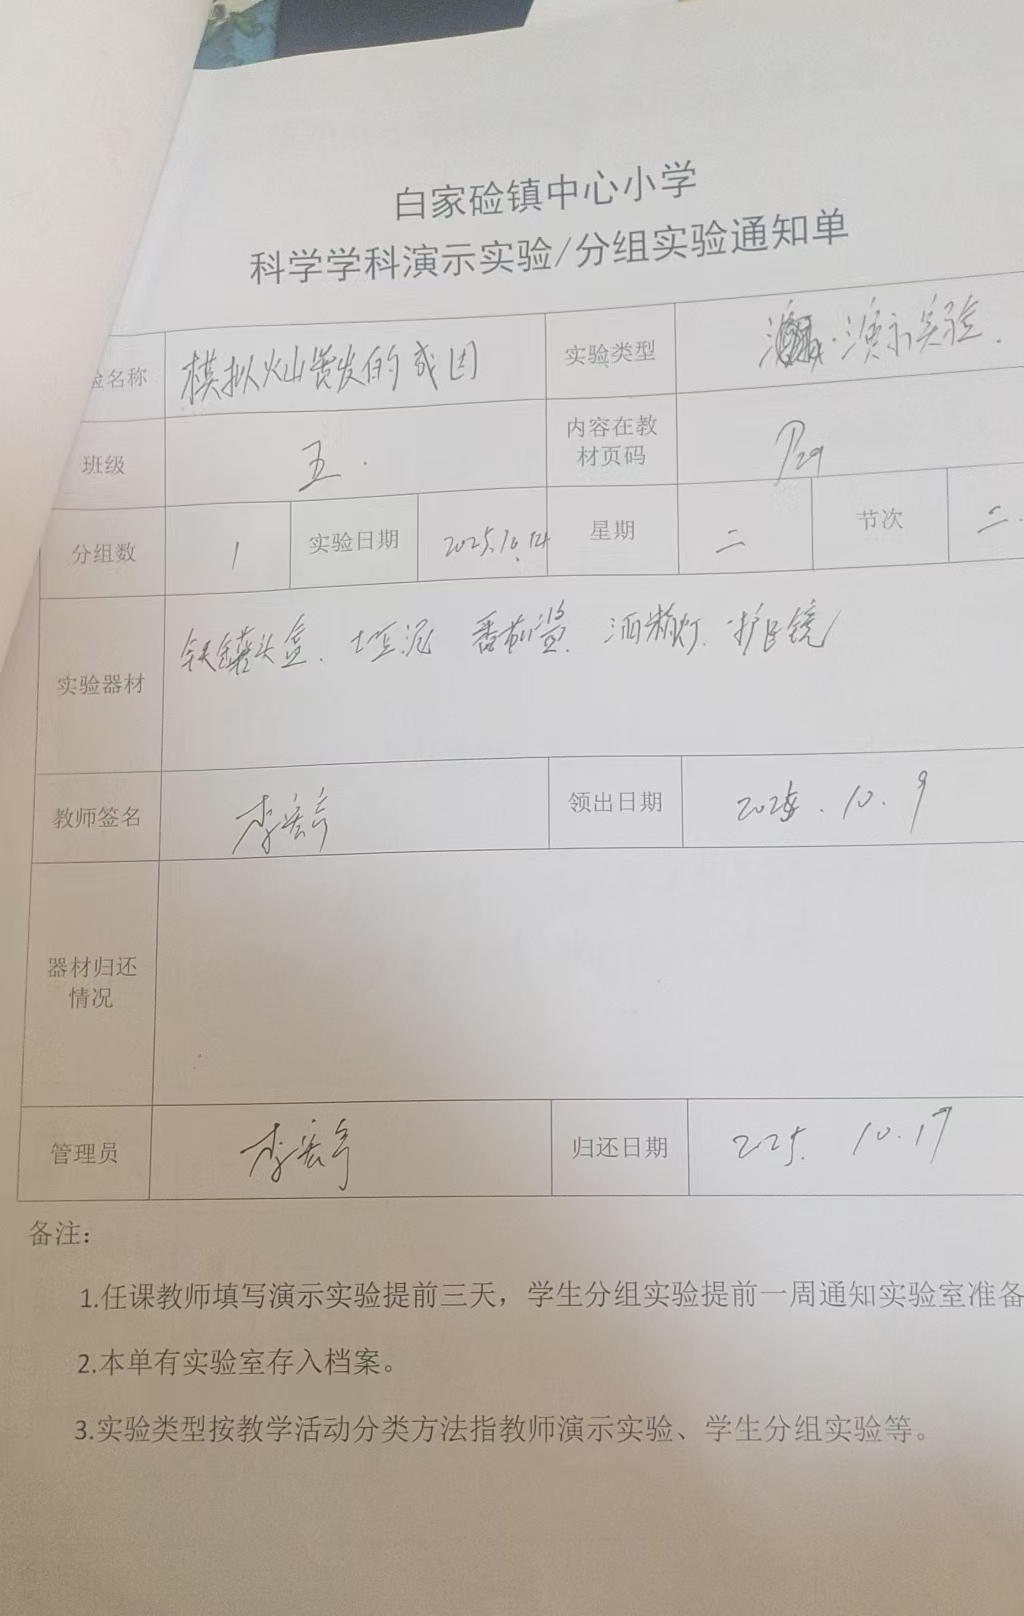 白家硷镇中心小学
科学学科演示实验/分组实验通知单
验名称 模拟火山喷发的成因 实验类型 演示实验.
班级 五. 内容在教材页码 P29
分组数 1 实验日期 2025.10.14 星期 二 节次 二.
实验器材 铁罐头盒、土豆泥 番茄酱. 酒精灯. 护目镜
教师签名 领出日期 2025.10.9
器材归还情况
管理员 归还日期 225. 10.17
备注：
1.任课教师填写演示实验提前三天，学生分组实验提前一周通知实验室准备
2.本单有实验室存入档案。
3.实验类型按教学活动分类方法指教师演示实验、学生分组实验等。